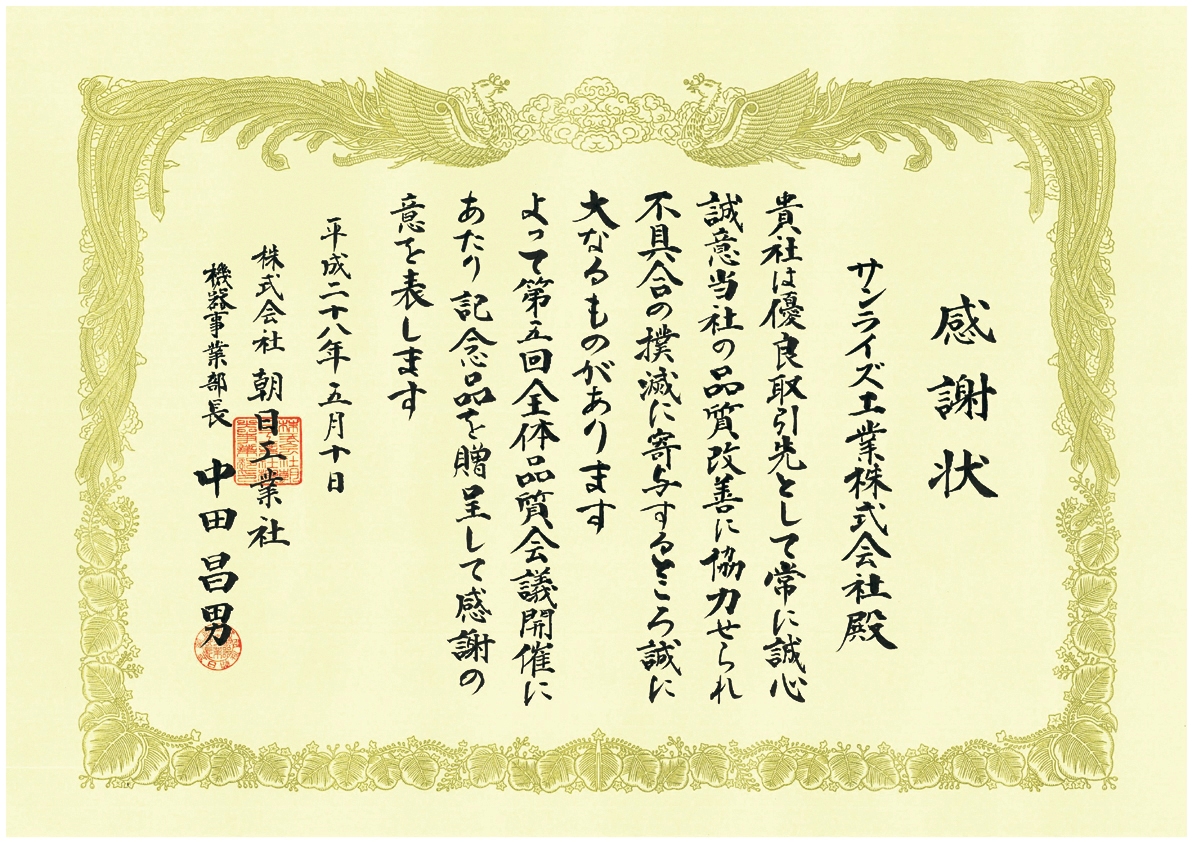 感謝状
サンライズ工業株式会社殿
貴社は優良取引先として常に誠心
誠意当社の品質改善に協力せられ
不具合の撲滅に寄与するところ誠に
大なるものがあります
よって第五回全体品質会議開催に
あたり記念品を贈呈して感謝の
意を表します
平成二十八年五月十日
株式会社朝日工業社
機器事業部長 中田昌男